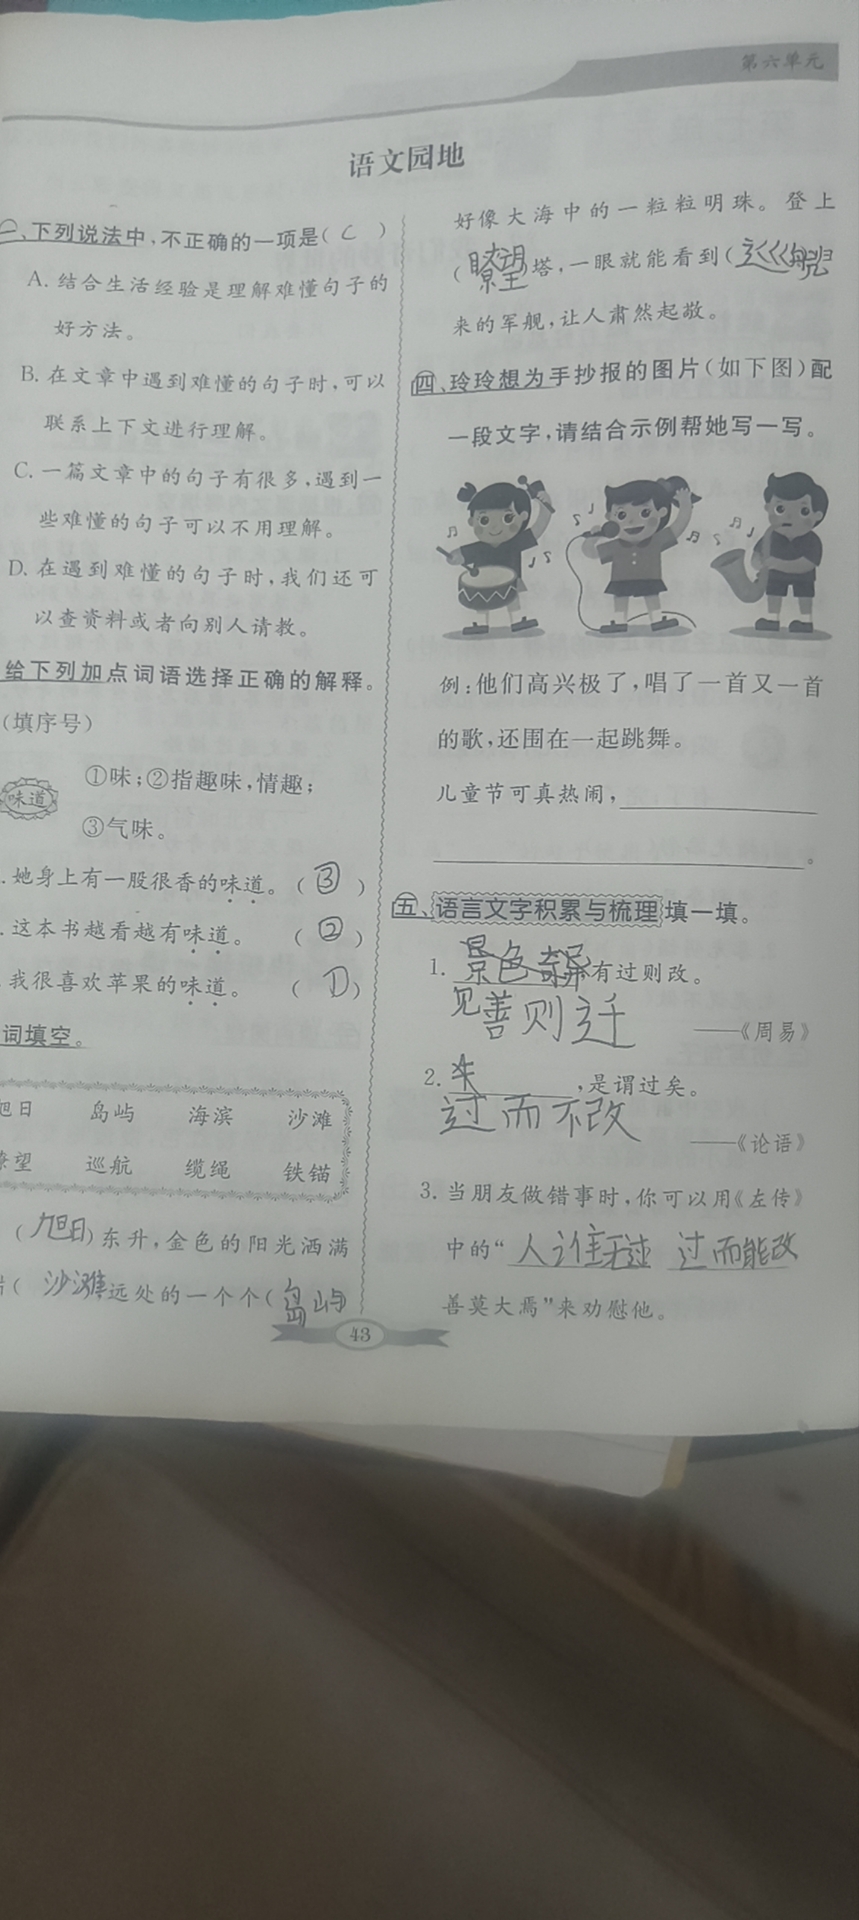 第六单元
语文园地
一、下列说法中,不正确的一项是( C )
A. 结合生活经验是理解难懂句子的
好方法。
B. 在文章中遇到难懂的句子时,可以
联系上下文进行理解。
C. 一篇文章中的句子有很多,遇到一
些难懂的句子可以不用理解。
D. 在遇到难懂的句子时,我们还可
以查资料或者向别人请教。
给下列加点词语选择正确的解释。
(填序号)
味道
①味;②指趣味,情趣;
③气味。
.她身上有一股很香的味道。( ③ )
.这本书越看越有味道。 ( ② )
.我很喜欢苹果的味道。 ( ① )
词填空。
旭日 岛屿 海滨 沙滩
瞭望 巡航 缆绳 铁锚
(旭日)东升,金色的阳光洒满
(沙滩远处的一个个(岛屿
43
好像大海中的一粒粒明珠。登上
(瞭望)塔,一眼就能看到(
来的军舰,让人肃然起敬。
四、玲玲想为手抄报的图片(如下图)配
一段文字,请结合示例帮她写一写。
例:他们高兴极了,唱了一首又一首
的歌,还围在一起跳舞。
儿童节可真热闹,
。
五、语言文字积累与梳理 填一填。
1. 景色奇异有过则改。
见善则迁
——《周易》
2. ,是谓过矣。
过而不改
——《论语》
3. 当朋友做错事时,你可以用《左传》
中的“人谁无过 过而能改
善莫大焉”来劝慰他。